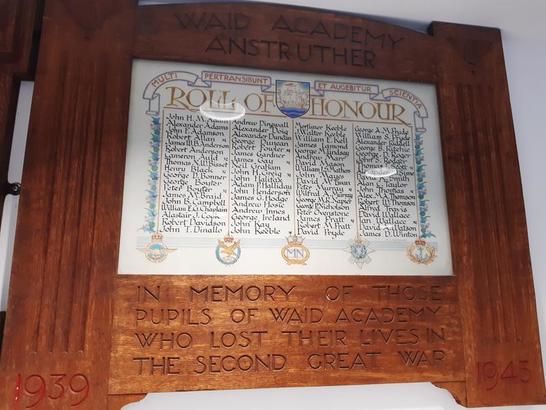 WAID ACADEMY
ANSTRUTHER
MULTI PERTRANSIBUNT ET AUGEBITUR SCIENTIA
ROLL OF HONOUR
John H.
Alexander Adams
John F. Adamson
Robert Allan
James W.B. Anderson
Robert Anderson
Cameron Auld
Thomas
Henry Black
George D. Bonner
George Bowter
Peter Bowter
James M. Braid
John B. Campbell
William E.G.
Alastair J. Cook
Robert Davidson
John T. Dinallo
Andrew Dingwall
Alexander Doig
Alexander Duncan
George Duncan
Robert Fowler
James Gardner
James Gay
Neil Graham
John H. Greig
John Halliday
Adam P. Halliday
John Henderson
James G. Hodge
Andrew Hosie
Andrew Innes
George Ireland
John Kay
John Keeble
Mortimer Keeble
J. Walter Keeble
William E. Kell
James Lamond
George M. Lindsay
Andrew Marr
David Mason
William Mathers
John Mayes
David M.
Peter Murray
Wilfred A. Murray
George M.R. Napier
George D. Nicholson
Peter Ovenstone
James Pratt
Robert M. Pratt
David Pryde
George A.M. Pryde
William S.
Alexander Riddell
George B. Ritchie
George
James
Thomas
David A. Smith
Alan L. Taylor
John Thomas
Alex M. Thomson
Robert W. Thomson
Alfred Travis
David Wallace
Ian Wallace
David A. Watson
James D. Winton
MN
IN MEMORY OF THOSE
PUPILS OF WAID ACADEMY
WHO LOST THEIR LIVES IN
THE SECOND GREAT WAR
1939
1945